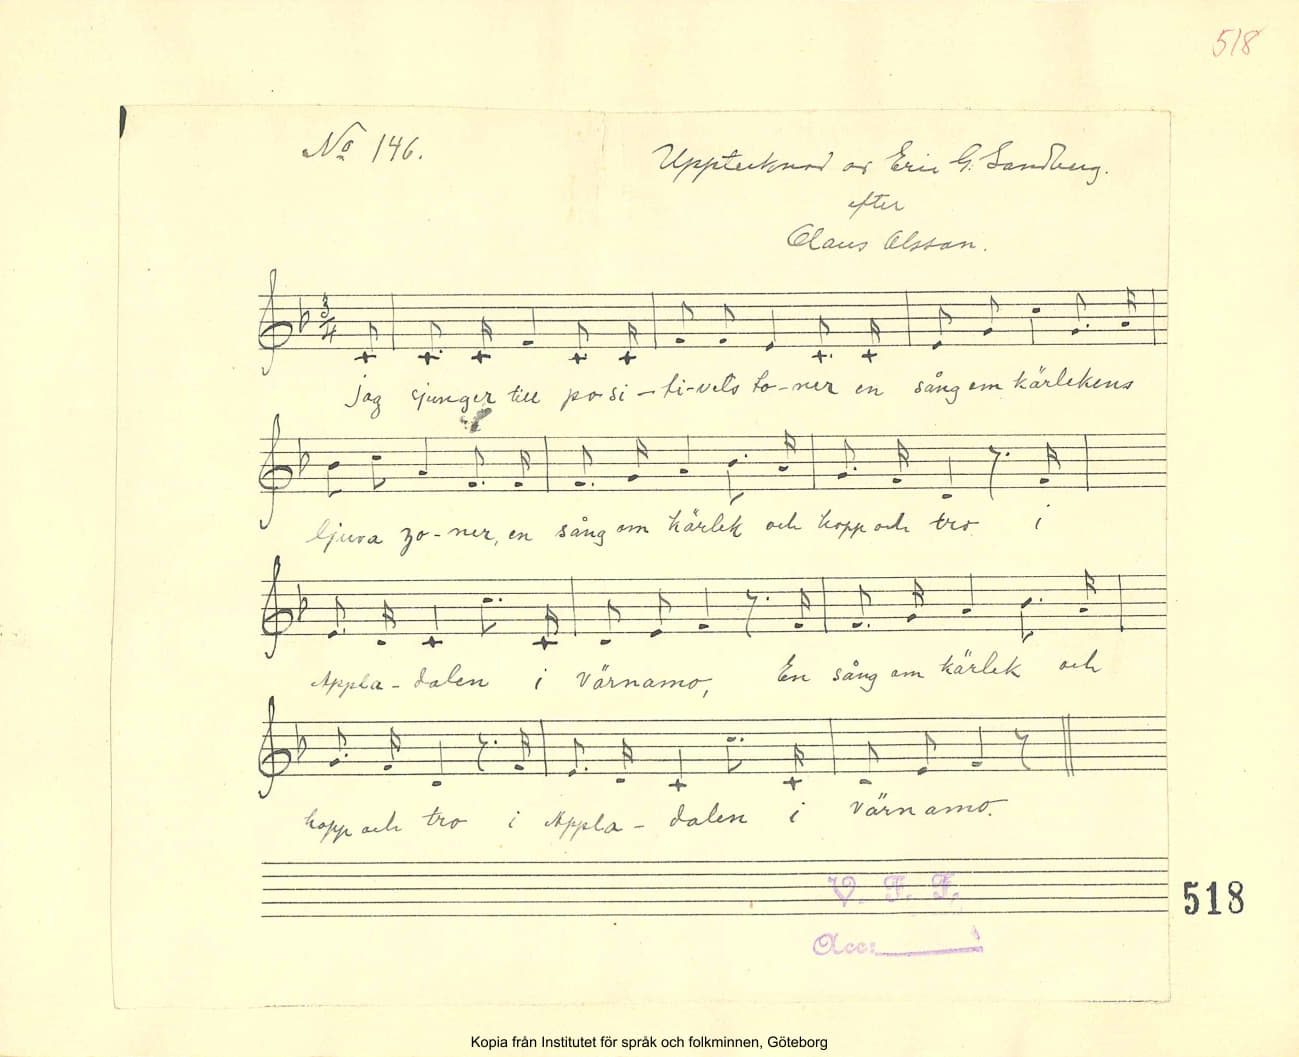 518
No 146.
Upptecknad av Eric G. Sandberg.
efter
Claus Olsson.
3/4
jag sjunger till po-si-ti-vets to-ner en sång om kärlekens
ljuva zo-ner, en sång om kärlek och hopp och tro i
Appla-dalen i Värnamo, En sång om kärlek och
hopp och tro i Appla-dalen i Värnamo.
V. F. F.
518
Acc:
Kopia från Institutet för språk och folkminnen, Göteborg